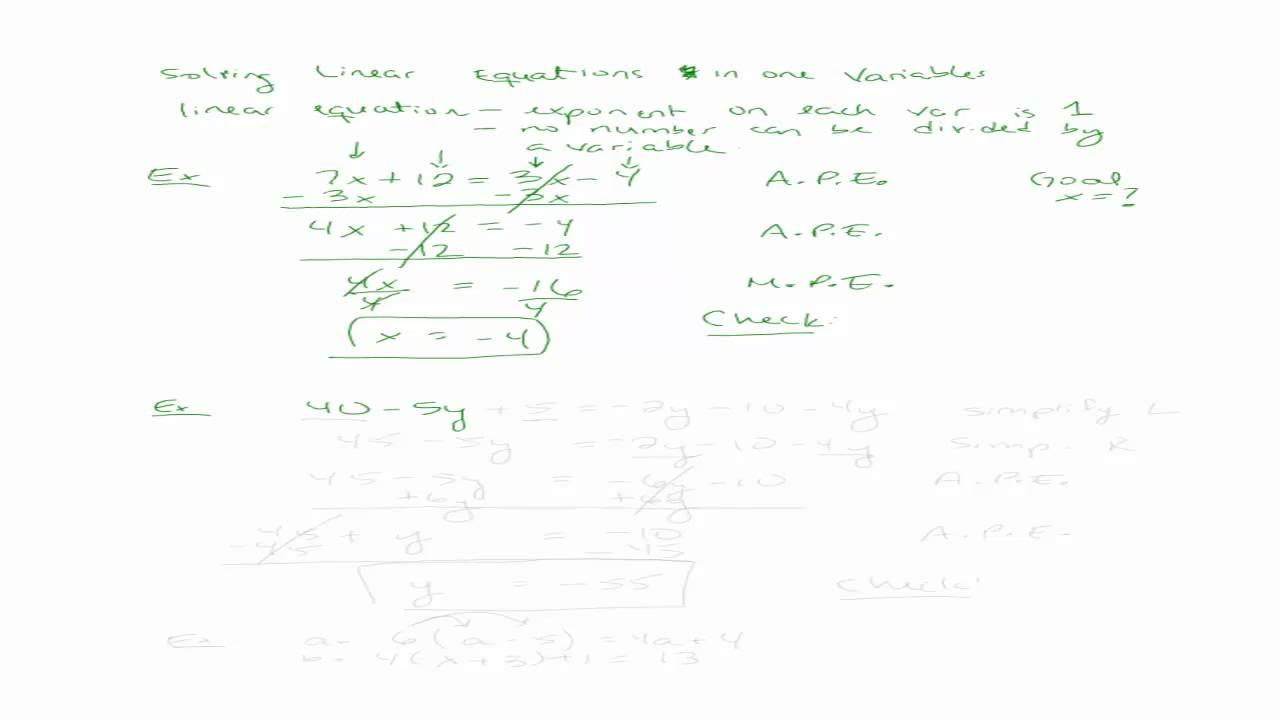 Solving Linear Equations in one Variables
linear equation - exponent on each var is 1
- no number can be divided by
a variable.
Ex 7x + 12 = 3x - 4 A.P.E. Goal
- 3x - 3x x = ?
4x + 12 = - 4 A.P.E.
- 12 - 12
4x/4 = - 16/4 M.P.E.
x = - 4 Check:
Ex 40 - 5y + 5 = - 2y - 10 - 4y Simplify L
45 - 5y = - 2y - 10 - 4y Simp. R
45 - 5y = - 6y - 10 A.P.E.
+ 6y + 6y
45 + y = - 10 A.P.E.
- 45 - 45
y = - 55 Check:
Ex a. 6(a - 5) = 4a + 4
b. 4(x + 3) + 1 = 13